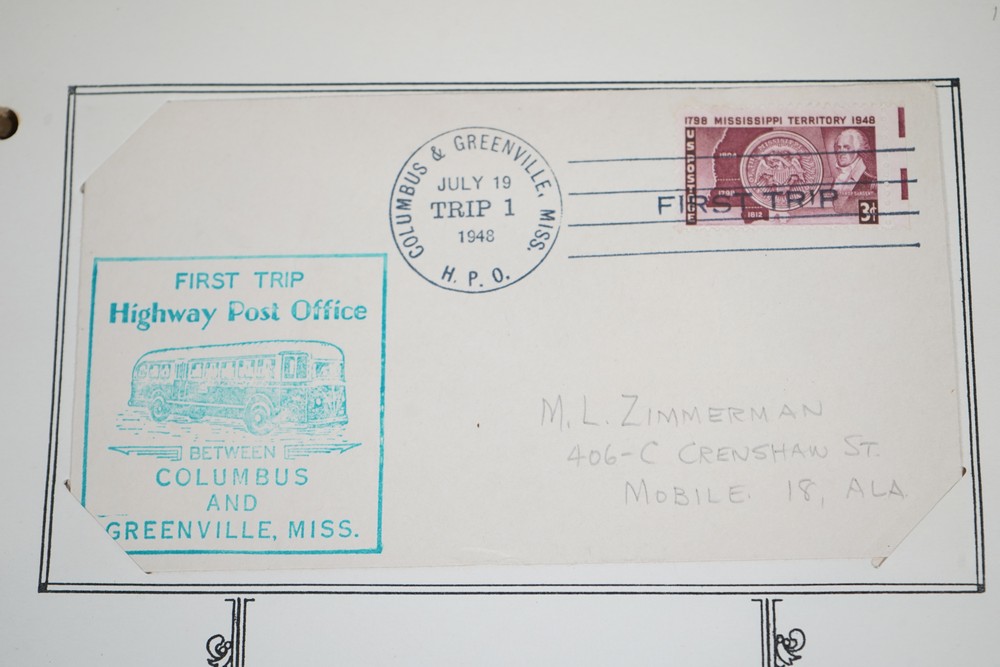 COLUMBUS & GREENVILLE, MISS.
JULY 19
TRIP 1
1948
H. P. O.
1798 MISSISSIPPI TERRITORY 1948
U S POSTAGE
1804
1798
1812
3¢
FIRST TRIP
FIRST TRIP
Highway Post Office
BETWEEN
COLUMBUS
AND
GREENVILLE, MISS.
M. L. ZIMMERMAN
406-C CRENSHAW ST.
MOBILE 18, ALA.